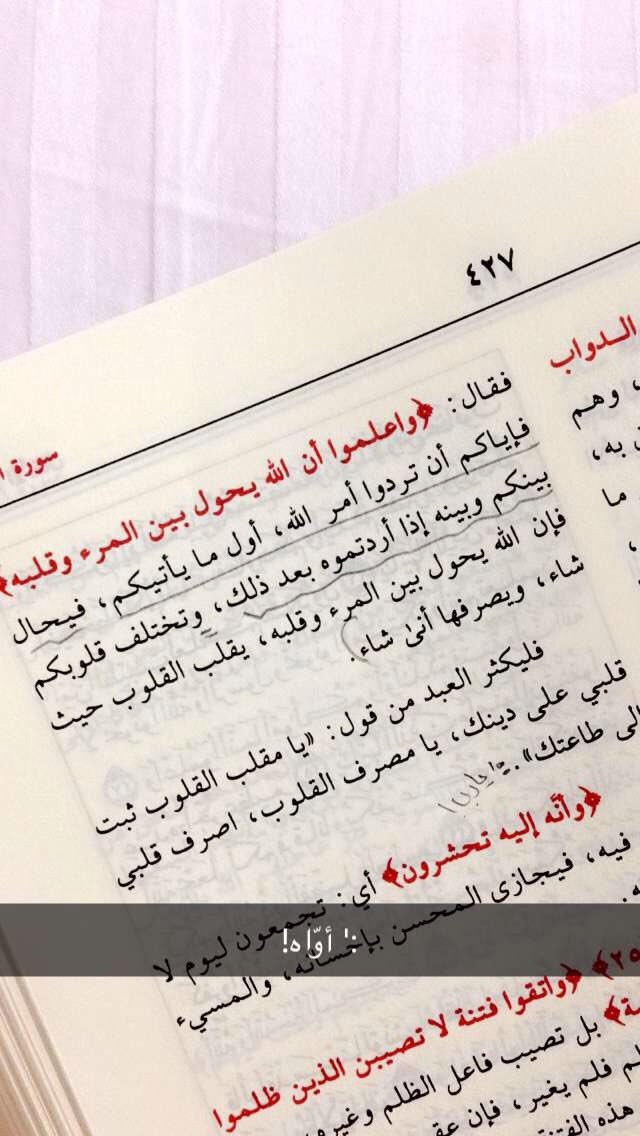 ٤٢٧
سورة
الـدواب
، وهـم
به،
ما
فقال: ﴿واعلـموا أن الله يـحول بين الـمرء وقلبه﴾
فإياكم أن تردوا أمر الله، أول ما يأتيكم، فيـحال
بينكم وبينه إذا أردتموه بعد ذلك، وتختلف قلوبكم
فإن الله يحول بين المرء وقلبه، يقلب القلوب حيث
شاء، ويصرفها أنىٰ شاء.
فليكثر العبد من قول: «يا مقلب القلوب ثبت
قلبي على دينك، يا مصرف القلوب، اصرف قلبي
لى طاعتك».
﴿وأنَّه إليه تحشرون﴾ أي: تجمعون ليوم لا
فيه، فيجازى المحسن بإحسانه، والمسيء
أوّاه!
٢٥﴾ ﴿واتقوا فتنة لا تصيبن الذين ظلموا
صة﴾ بل تصيب فاعل الظلم وغيره
لم فلم يغير، فإن
هذه